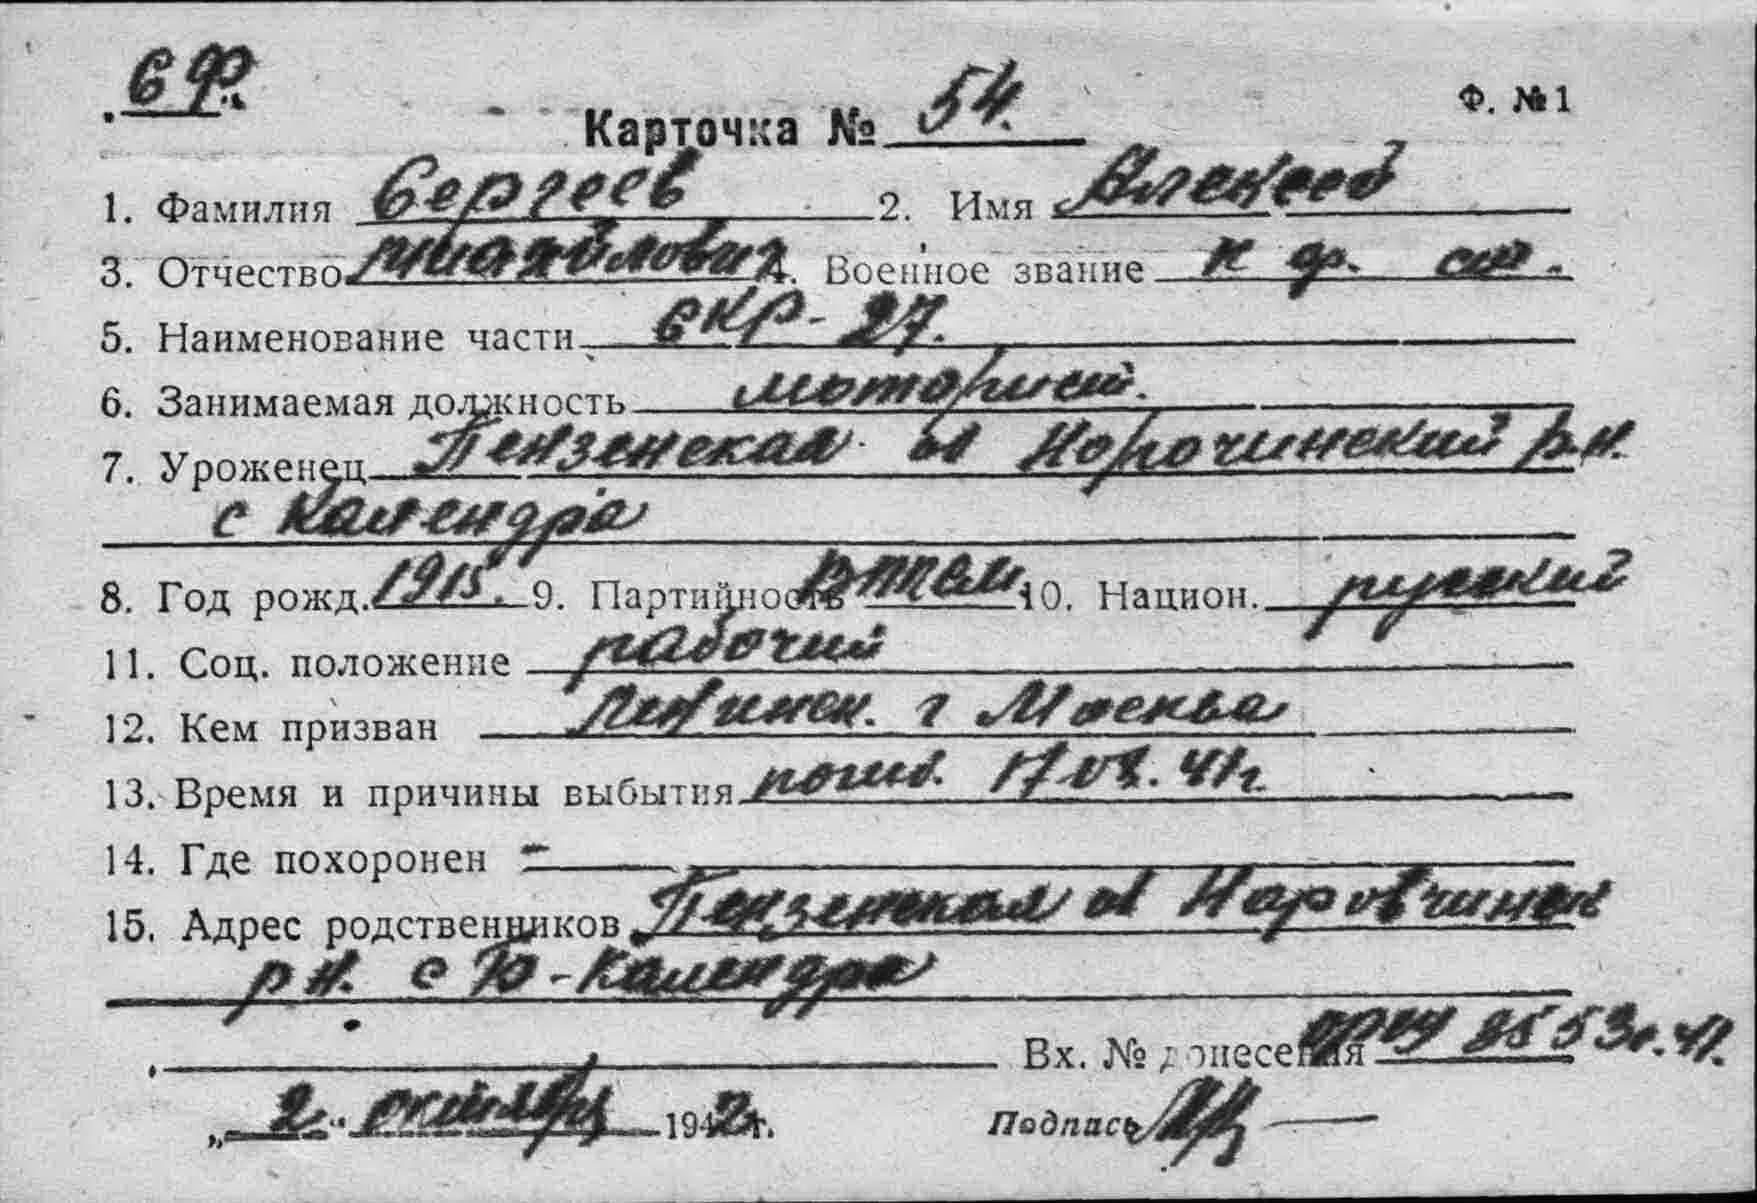 СФ.
Ф. № 1
Карточка № 54.
1. Фамилия Сергеев 2. Имя Алексей
3. Отчество Михайлович 4. Военное звание к ф. ст.
5. Наименование части СКР-27.
6. Занимаемая должность моторист.
7. Уроженец Пензенская обл Норочинский р.н.
с Календра
8. Год рожд. 1915. 9. Партийность 10. Национ. русский
11. Соц. положение рабочий
12. Кем призван г Москва
13. Время и причины выбытия погиб. 17.08.41г.
14. Где похоронен –
15. Адрес родственников Пензенская обл Наровчинск
р н. с -Календра
Вх. № донесения 53с.41.
„2" октября 1942г. Подпись